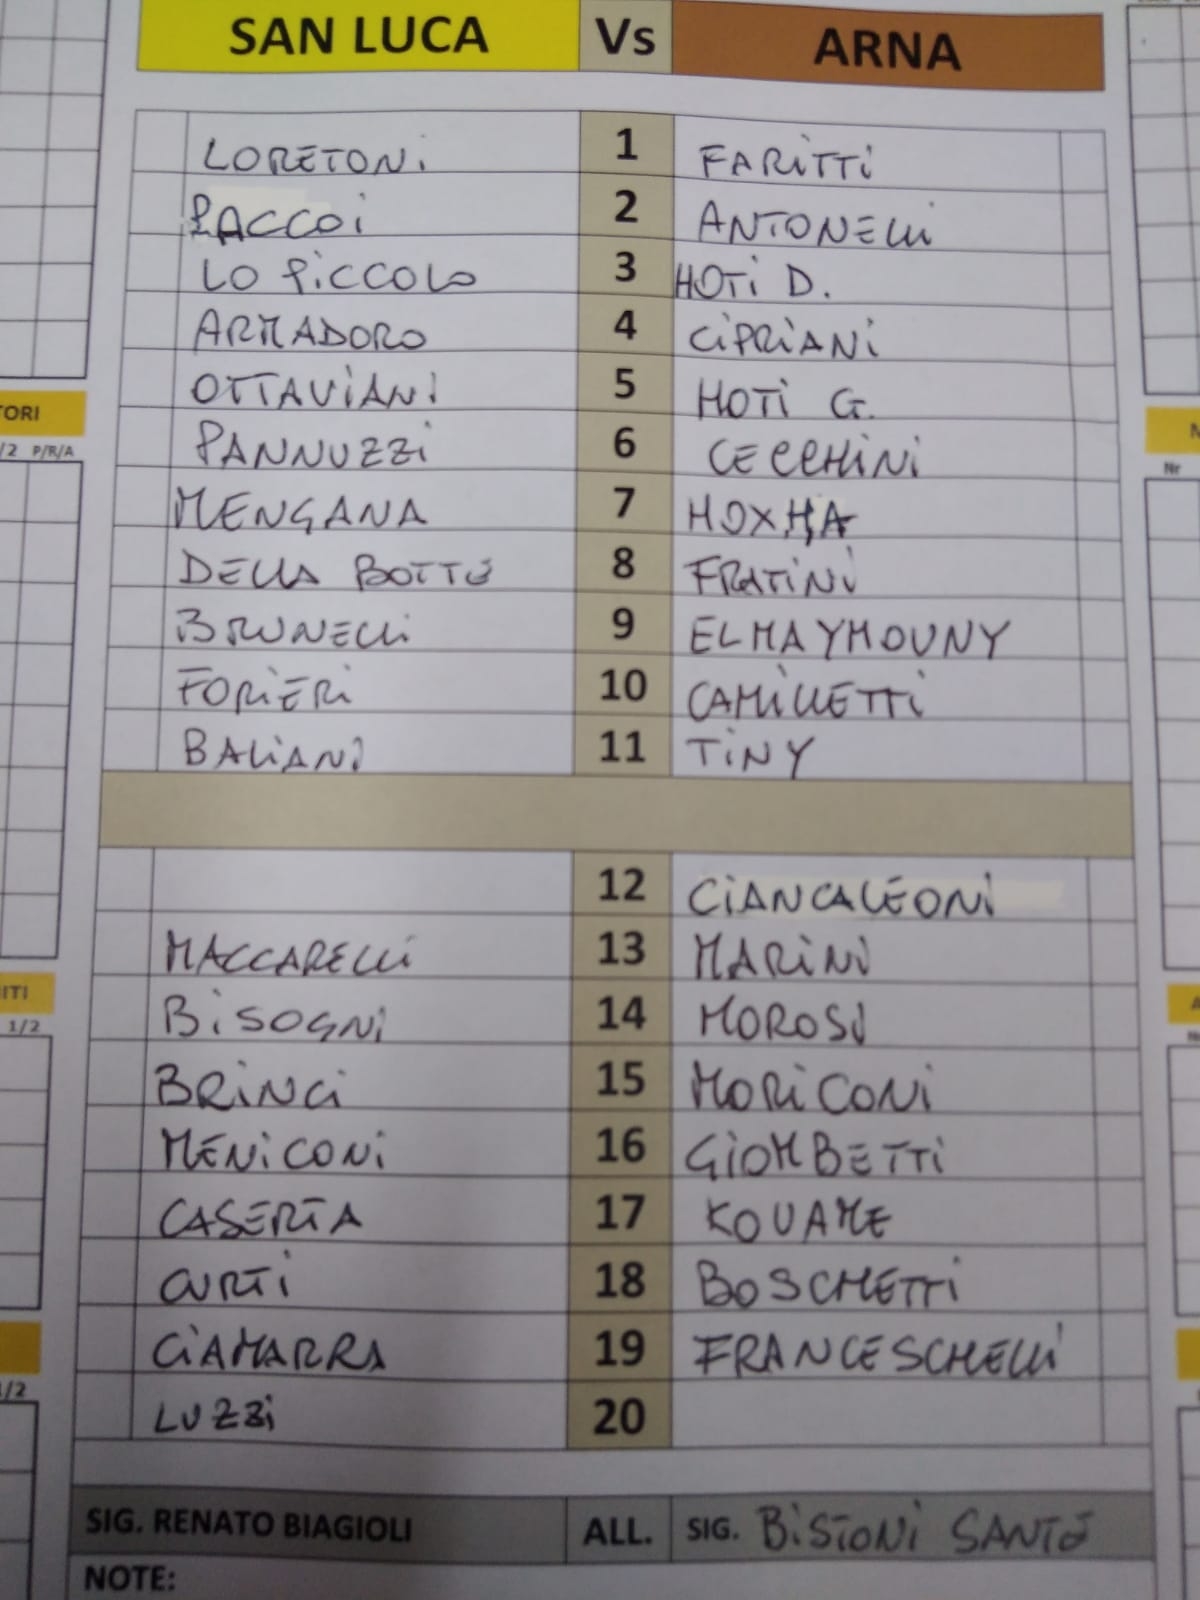 SAN LUCA Vs ARNA
LORETONI 1 FARITTI
PACCOI 2 ANTONELLI
LO PICCOLO 3 HOTI D.
ARMADORO 4 CIPRIANI
OTTAVIANI 5 HOTI G.
PANNUZZI 6 CECCHINI
MENGANA 7 HOXHA
DELLA BOTTE 8 FRATINI
BRUNELLI 9 ELMAYMOUNY
FORIERI 10 CAMILLETTI
BALIANI 11 TINY
12 CIANCALEONI
MACCARELLI 13 MARINI
BISOGNI 14 MOROSI
BRINCI 15 MORICONI
MENICONI 16 GIOMBETTI
CASERTA 17 KOUAME
CURTI 18 BOSCHETTI
CIAMARRA 19 FRANCESCHELLI
LUZZI 20
SIG. RENATO BIAGIOLI ALL. SIG. BISTONI SANTE
NOTE:
TORI
/2 P/R/A
ITI
1/2
1/2
N
Nr
A